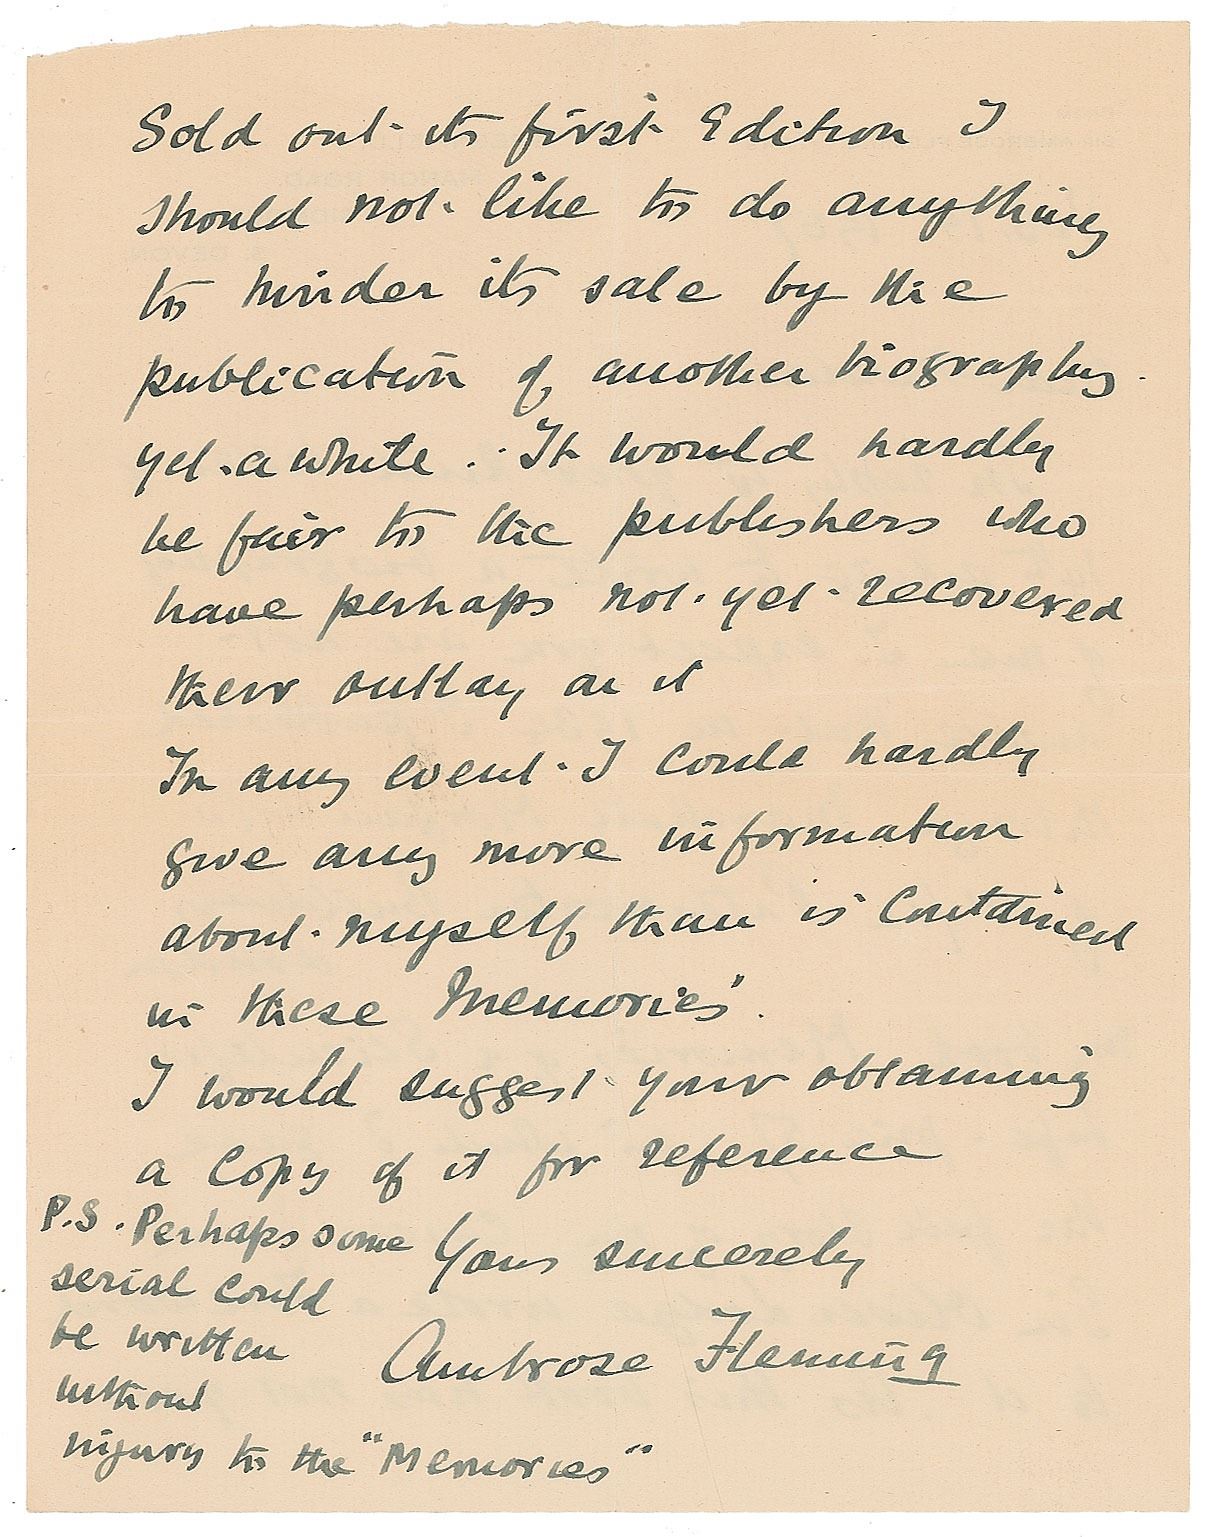 Sold out its first Edition I
should not like to do anything
to hinder its sale by the
publication of another biography.
yet a while. It would hardly
be fair to the publishers who
have perhaps not yet recovered
their outlay on it
In any event I could hardly
give any more information
about myself than is contained
in these Memories".
I would suggest your obtaining
a Copy of it for reference
Yours sincerely
Ambrose Fleming
P.S. Perhaps some
serial could
be written
without
injury to the "Memories"